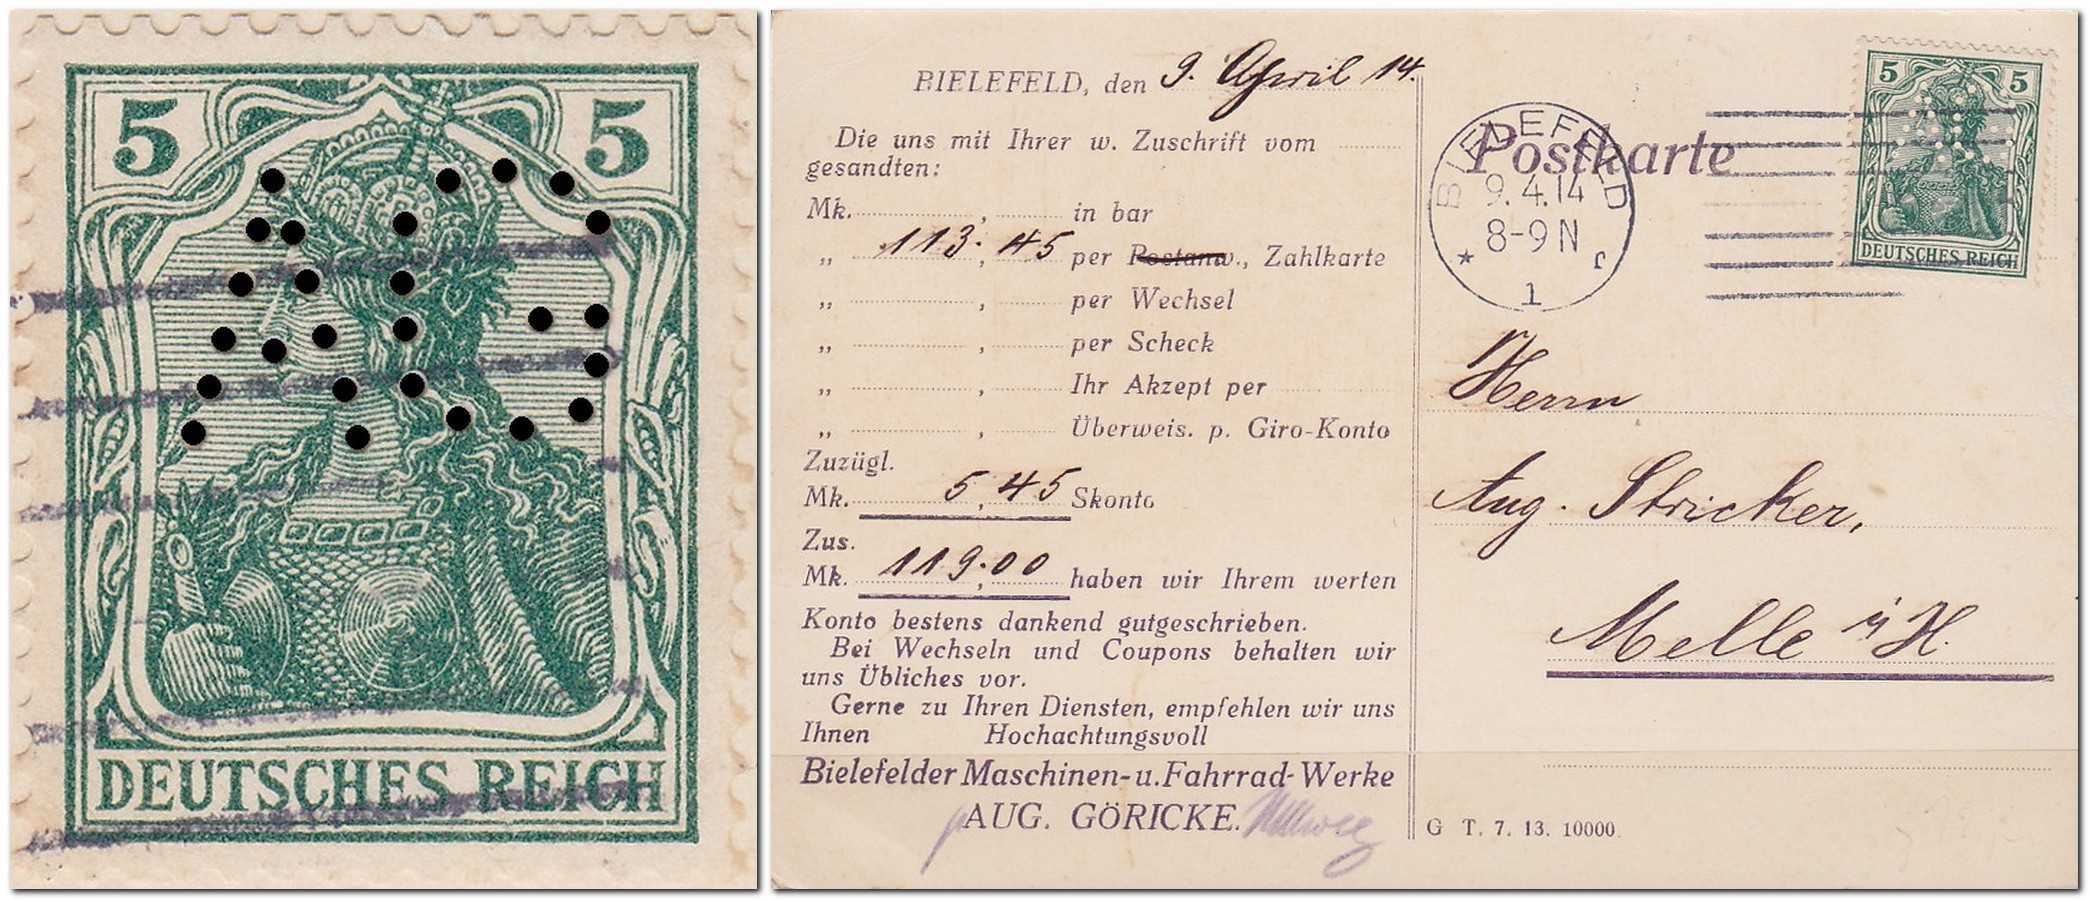 5 5
A G
DEUTSCHES REICH
BIELEFELD, den 9. April 14.
Die uns mit Ihrer w. Zuschrift vom
gesandten:
Mk. , in bar
„ 113, 45 per Postanw., Zahlkarte
„ , per Wechsel
„ , per Scheck
„ , Ihr Akzept per
„ , Überweis. p. Giro-Konto
Zuzügl.
Mk. 5, 45 Skonto
Zus.
Mk. 119, 00 haben wir Ihrem werten
Konto bestens dankend gutgeschrieben.
Bei Wechseln und Coupons behalten wir
uns Übliches vor.
Gerne zu Ihren Diensten, empfehlen wir uns
Ihnen Hochachtungsvoll
Bielefelder Maschinen- u. Fahrrad-Werke
AUG. GÖRICKE.
Postkarte
BIELEFELD
9.4.14
8-9 N
* 1 r
5 5
DEUTSCHES REICH
Herrn
Aug. Stricker,
Melle i/H.
G T. 7. 13. 10000.